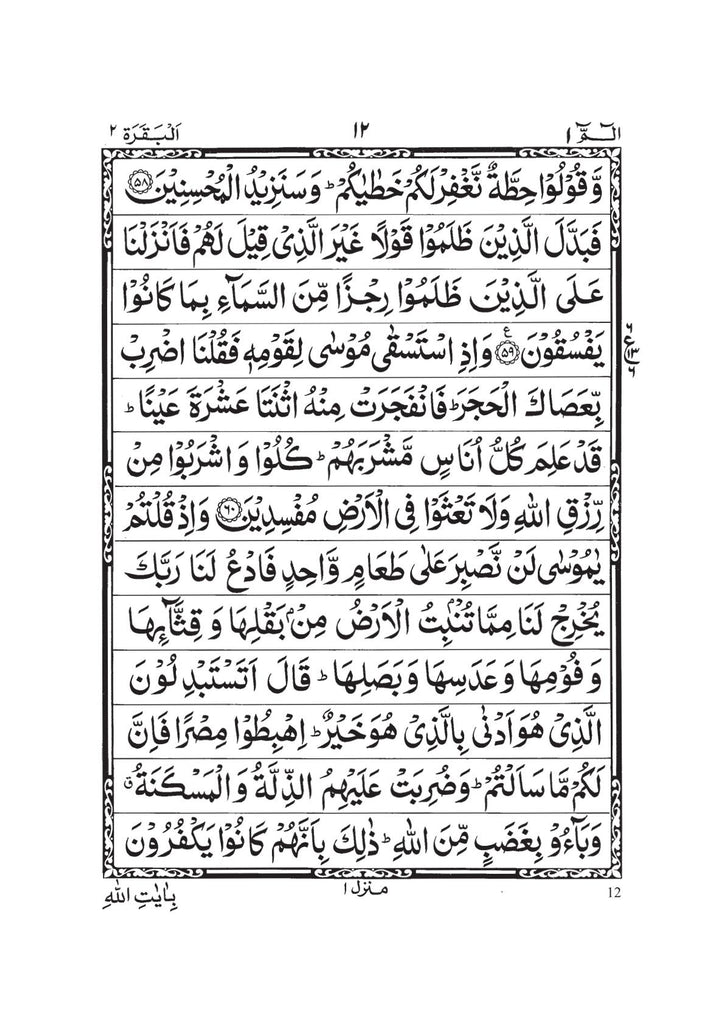 الٓمّٓ ١ ١٢ اَلْبَقَرَة ٢
وَّ قُوْلُوْا حِطَّةٌ نَّغْفِرْ لَكُمْ خَطٰيٰكُمْ ؕ وَ سَنَزِيْدُ الْمُحْسِنِيْنَ ﴿۵۸﴾
فَبَدَّلَ الَّذِيْنَ ظَلَمُوْا قَوْلًا غَيْرَ الَّذِيْ قِيْلَ لَهُمْ فَاَنْزَلْنَا
عَلَى الَّذِيْنَ ظَلَمُوْا رِجْزًا مِّنَ السَّمَآءِ بِمَا كَانُوْا
يَفْسُقُوْنَ ﴿۵۹﴾ ع وَ اِذِ اسْتَسْقٰى مُوْسٰى لِقَوْمِهٖ فَقُلْنَا اضْرِبْ
٦ ع ١٣ ٦
بِّعَصَاكَ الْحَجَرَ ؕ فَانْفَجَرَتْ مِنْهُ اثْنَتَا عَشْرَةَ عَيْنًا ؕ
قَدْ عَلِمَ كُلُّ اُنَاسٍ مَّشْرَبَهُمْ ؕ كُلُوْا وَ اشْرَبُوْا مِنْ
رِّزْقِ اللّٰهِ وَلَا تَعْثَوْا فِي الْاَرْضِ مُفْسِدِيْنَ ﴿۶۰﴾ وَ اِذْ قُلْتُمْ
يٰمُوْسٰى لَنْ نَّصْبِرَ عَلٰى طَعَامٍ وَّاحِدٍ فَادْعُ لَنَا رَبَّكَ
يُخْرِجْ لَنَا مِمَّا تُنْۢبِتُ الْاَرْضُ مِنْۢ بَقْلِهَا وَ قِثَّآئِهَا
وَ فُوْمِهَا وَ عَدَسِهَا وَ بَصَلِهَا ؕ قَالَ اَتَسْتَبْدِلُوْنَ
الَّذِيْ هُوَ اَدْنٰى بِالَّذِيْ هُوَ خَيْرٌ ؕ اِهْبِطُوْا مِصْرًا فَاِنَّ
لَكُمْ مَّا سَاَلْتُمْ ؕ وَضُرِبَتْ عَلَيْهِمُ الذِّلَّةُ وَ الْمَسْكَنَةُ ۗق
وَبَآءُوْ بِغَضَبٍ مِّنَ اللّٰهِ ؕ ذٰلِكَ بِاَنَّهُمْ كَانُوْا يَكْفُرُوْنَ
12 منزل ١ بِاٰيٰتِ اللّٰهِ